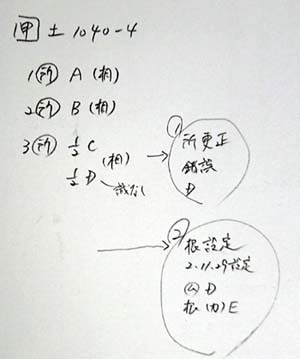 甲 土 1040-4
1 所 A (相)
2 所 B (相)
3 所 1/2 C
(相)
1/2 D
識なし
→
①
所更正
錯誤
D
→
②
根設定
2.11.29設定
D
根(力)E